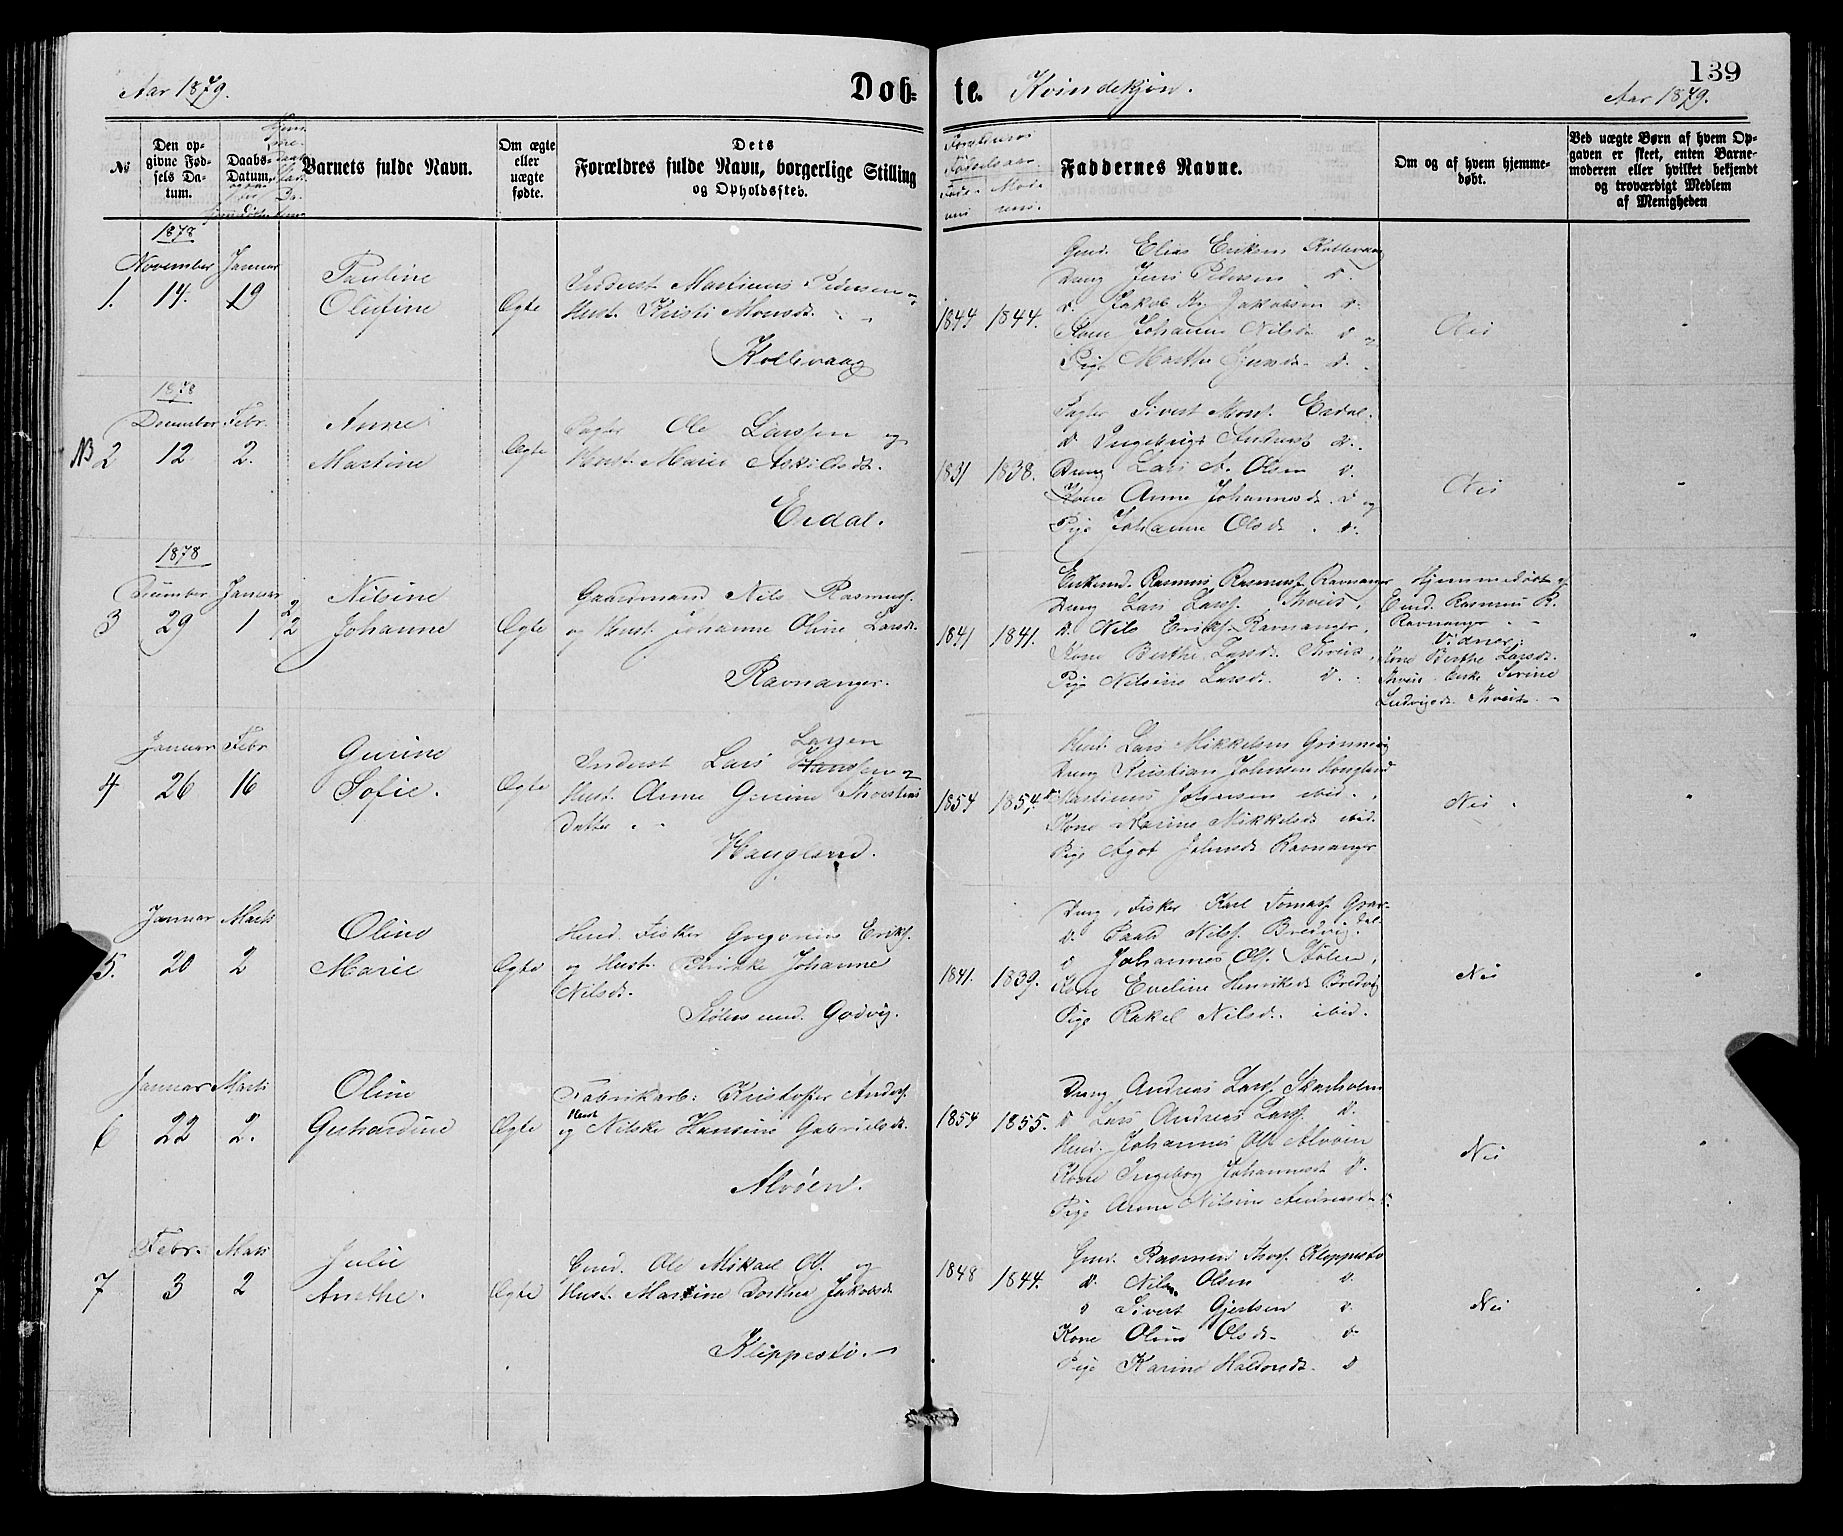 139
Aar 1879.
Døb-
te.
Kvindekjøn.
Aar 1879.
No
Den op-
givne Fød-
sels Da-
tum.
Daabs-
Datum.
Barnets fulde Navn.
Om ægte
eller
uægte
fødte.
Dets
Forældres fulde Navn, borgerlige Stilling
og Opholdssted.
Forældrenes
Fødselsaar.
Fade- Mode-
rens rens.
Faddernes Navne.
Om og af hvem hjemme-
døbt.
Ved uægte Børn af hvem Op-
gaven er skeet, enten Barne-
moderen eller hvilket bekjendt
og troværdigt Medlem
af Menigheden
1878
November Januar
1. 14. 19
Pauline
Olufine
Ægte
Inderst Martinus Pedersen og
Hust. Kristi Monsdt.
Kollevaag
1844 1844.
Gmd. Elias Eriksen Kollevaag
Dreng Jens Pedersen d.
d. Jakob Kr. Jakobsen d.
Kone Johanne Nilsdt. d og
Pige Marthe d.
Nei
1878
December Febr.
NB 2 12 2.
Anne
Martine
Ægte
Ole Larssen og
Hust. Marie Askildsdt.
Erdal.
1831 1838.
Sivert Mons. Erdal.
d Ingebrigt d.
Dreng Lars A. Olsen d.
Kone Anne Johannesdt. d og
Pige Johanne Olsdt. d.
Nei
1878
December Januar
3 29 1 2/2
Nilsine
Johanne
Ægte
Gaardmand Nils Rasmuss.
og Hust. Johanne Oline Larsdt.
Ravnanger.
1841 1841.
Enkemd. Rasmus Rasmuss. Ravnanger
Dreng Lars Larss. Thveit,
d. Nils Eriks. Ravnanger,
Kone Berthe Larsdt. Thveit,
Pige Nilsine Larsdt. d.
Hjemmedøbt af
Emd. Rasmus R.
Ravnanger
Vidner:
Kone Berthe Larsdt.
Thveit Enke Serine
Ludvigsdt. Thveit.
Januar Febr
4 26 16
Gurine
Sofie.
Ægte
Larsen
Inderst Lars Hanssen og
Hust. Anne Gurine
datter
Haugland.
1854 1854.
Lars Mikkelsen
Dreng Kristian Johnsen Haugland
d Martinus Johnsen ibid.,
Kone Karine Mikkelsdt. ibid.
Pige Agot Johnsdt. Ravnanger
Nei
Januar Marts
5. 20 2
Oline
Marie
Ægte
Hmd. Fisker Gregorius Eriks.
og Hust. Johanne
Nilsdt.
Stølen und. Godvig.
1841. 1839.
Dreng, Fisker Karl Tomass. Grav-
dal
d. Paald Nilss. Bredvig
d Johannes Ols. Stølen,
Kone Eveline Henriksdt. Bredvig
Pige Rakel Nilsdt. ibid.
Nei
Januar Marts
6 22 2.
Oline
Gerhardine
Ægte
Fabrikarb: Kristoffer Anders.
Hust
og Nilske Hansine Gabrielsdt.
Alvøen.
1854 1855.
Dreng Andreas Larss. Skarholm
d Lars Andreas Larss. d.
Hmd. Johannes Ols. Alvøen
Kone Ingeborg Johannesdt. d.
Pige Anne Nilsine Andreasdt. d.
Nei
Febr. Marts
7 3 2
Julie
Anethe.
Ægte
Gmd. Ole Mikael Ols. og
Hust. Martine Dorthea Jakobsdt.
Kleppestø.
1848 1844.
Gmd. Rasmus Kleppestø
d. Nils Olsen d.
d Sivert Gjertsen d.
Kone Oline Olsdt. d
Pige Karine Haldorsdt. d
Nei